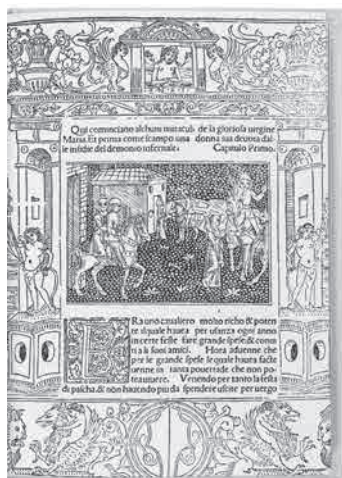 Qui cominciano alchuni miracub de la gloriosa uirgine
Maria. Et prima come scampo una donna sua deuota dal
le insidie del demonio infernale. Capitulo Primo.
ERa uno caualiero molto richo & poten
te ilquale hauea per usanza ogni anno
in certe feste fare grande spese & conui
ti a li suoi amici. Hora aduenne che
per le grande spese lequale hauea facte
uenne in tanta pouertade che non po
tea Venendo per tanto la festa
di pascha & non hauendo piu da spendere uscite per uergo